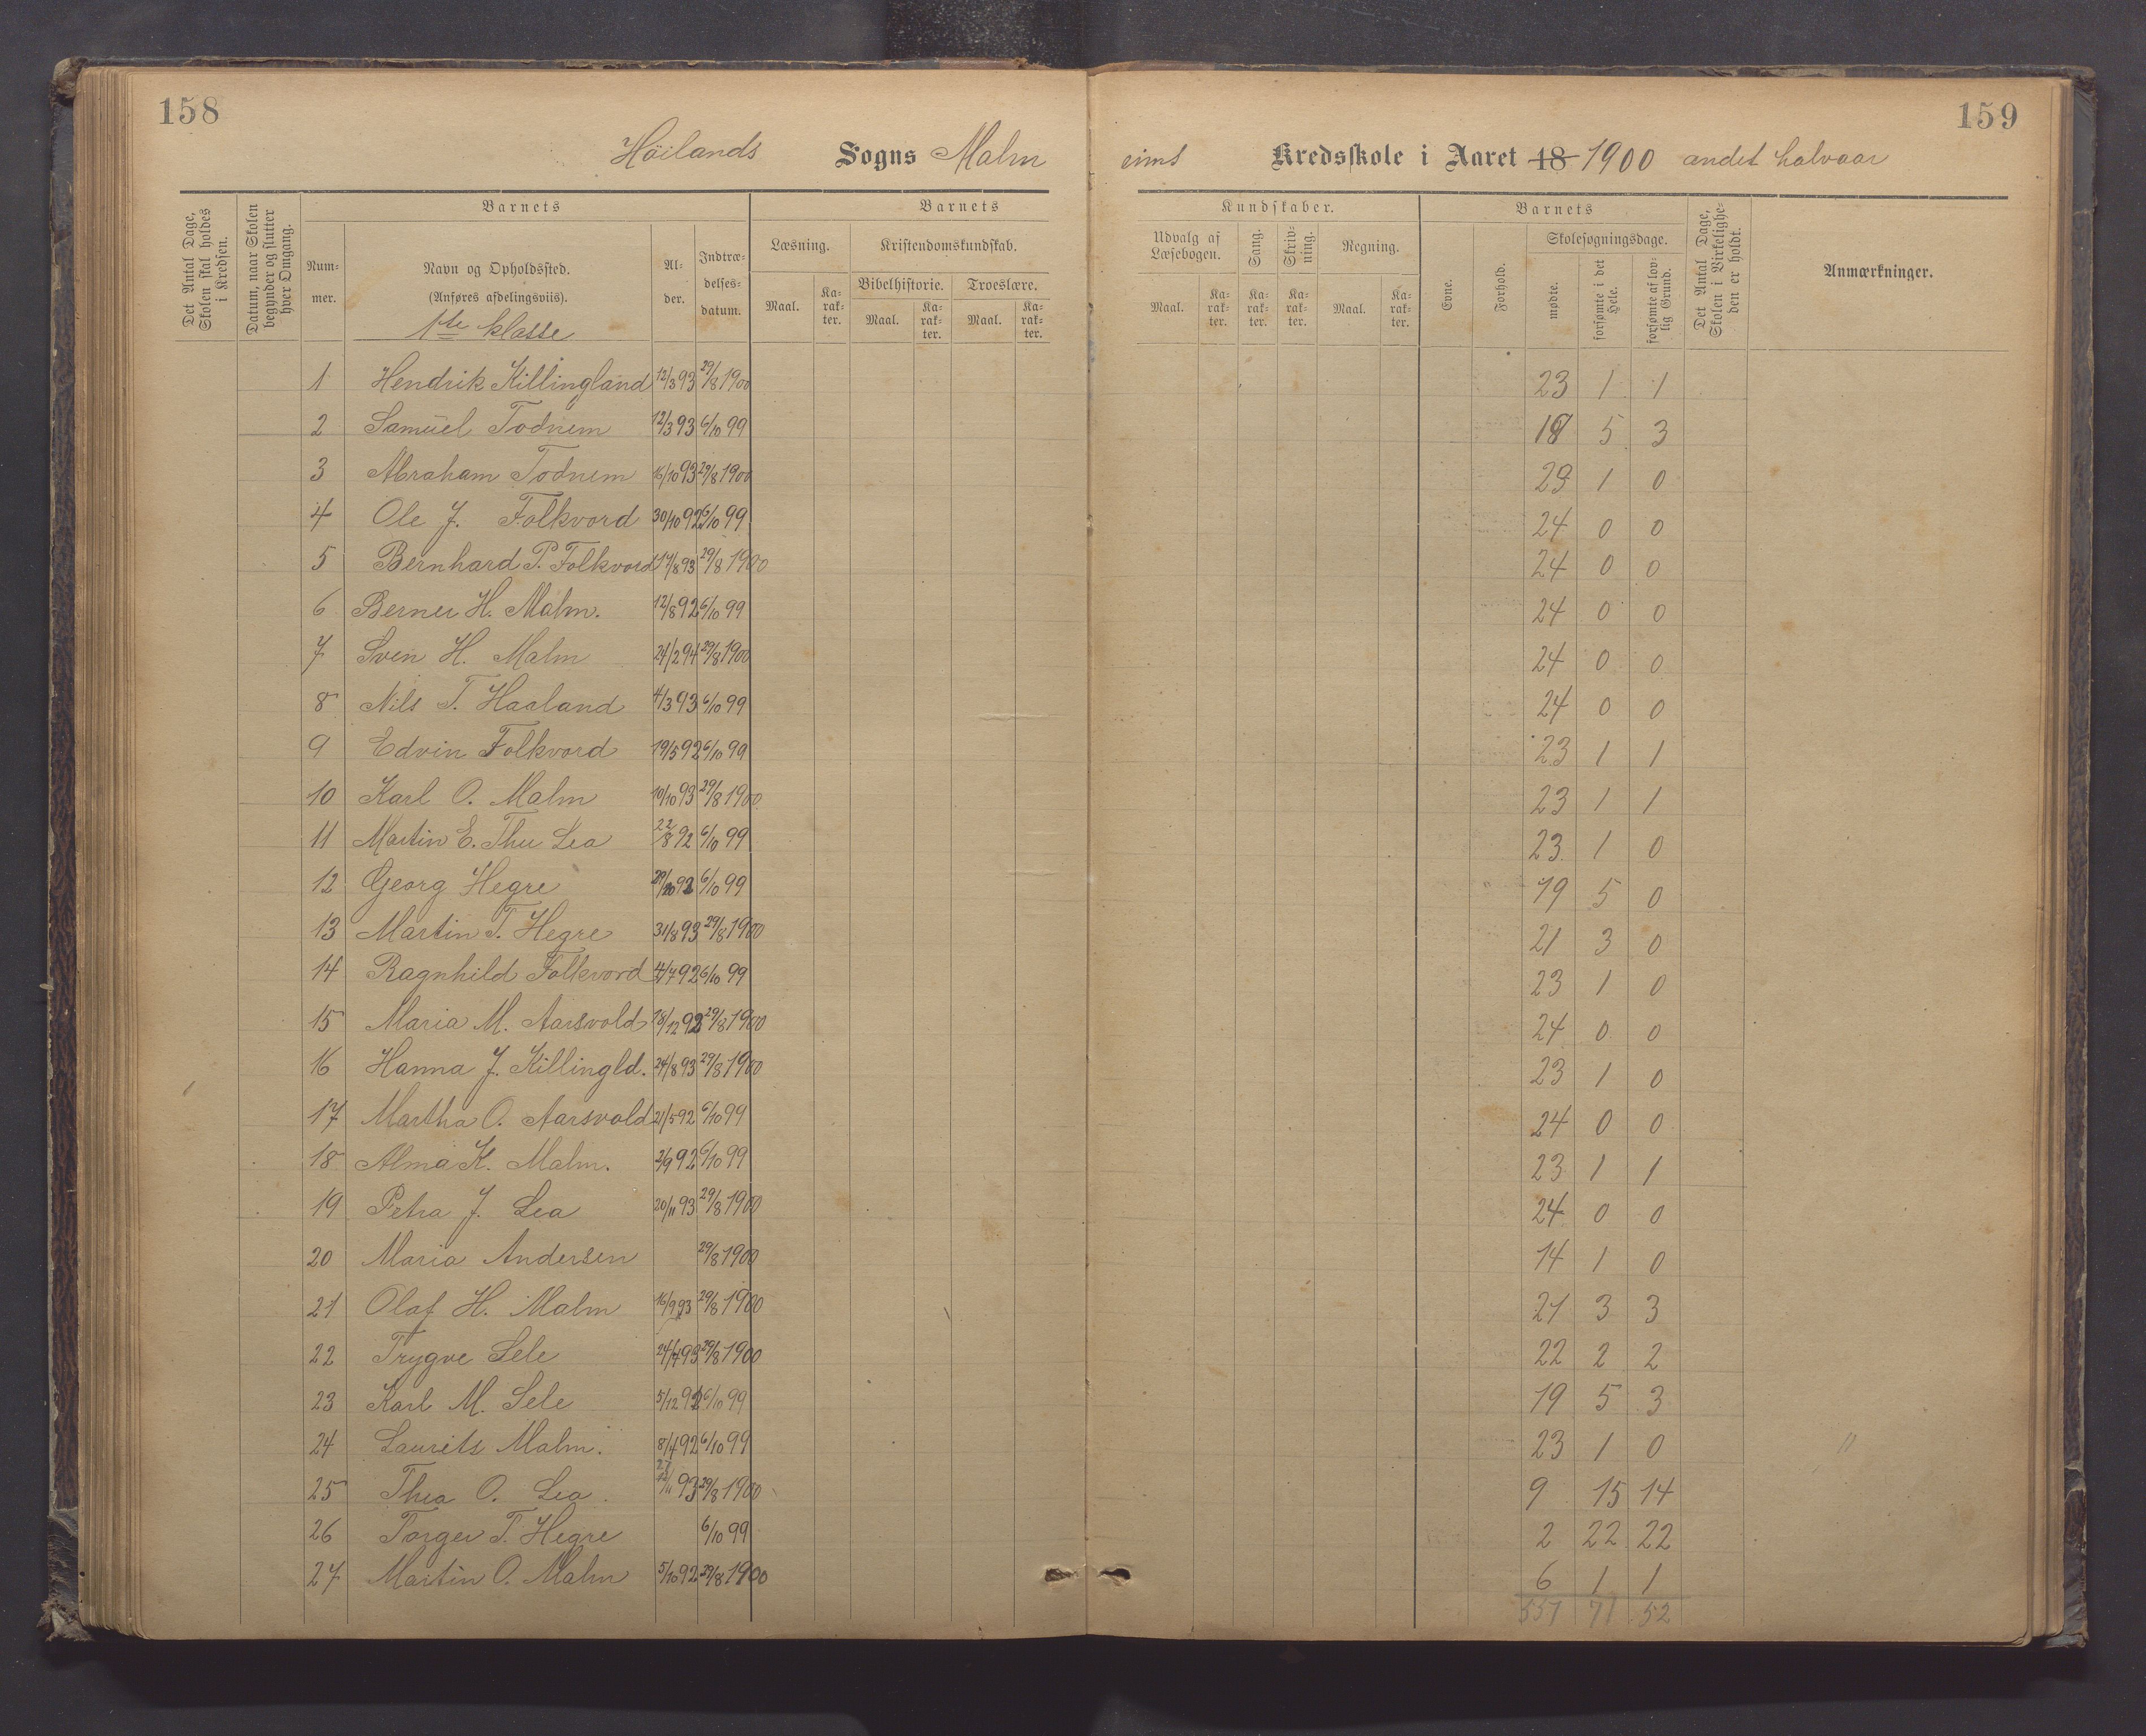 158
159
Höilands Sogns Malm eims Kredsskole i Aaret 18 1900 andet halvaar
Det Antal Dage, Skolen skal holdes i Kredsen.
Datum, naar Skolen begynder og slutter hver Omgang.
Barnets
Barnets
Kundskaber.
Barnets
Det Antal Dage, Skolen i Virkelighe- den er holdt.
Anmærkninger.
Num- mer.
Navn og Opholdssted.
(Anføres afdelingsviis).
1ste klasse
Al- der.
Indtræ- delses- datum.
Læsning.
Kristendomskundskab.
Bibelhistorie.
Troeslære.
Maal. Ka- rak- ter. Maal. Ka- rak- ter. Maal. Ka- rak- ter.
Udvalg af Læsebogen.
Sang.
Skriv- ning.
Regning.
Maal. Ka- rak- ter. Ka- rak- ter. Ka- rak- ter. Maal. Ka- rak- ter.
Evne.
Forhold.
Skolesøgningsdage.
mødte.
forsømte i det Hele.
forsømte af lov- lig Grund.
1 Hendrik Killingland 12/3 93 29/8 1900 23 1 1
2 Samuel Todnem 12/3 93 6/10 99 5 3
3 Abraham Todnem 16/10 93 29/8 1900 23 1 0
4 Ole J. Folkvord 30/10 92 6/10 99 24 0 0
5 Bernhard P. Folkvord 17/8 93 29/8 1900 24 0 0
6 Berner H. Malm. 12/8 92 6/10 99 24 0 0
7 Sven H. Malm 24/2 94 29/8 1900 24 0 0
8 Nils T. Haaland 4/3 93 6/10 99 24 0 0
9 Edvin Folkvord 19/5 92 6/10 99 23 1 1
10 Karl O. Malm 10/10 93 29/8 1900 23 1 1
11 Martin E. Thu Lea 22/8 92 6/10 99 23 1 0
12 Georg Hegre 6/10 99 19 5 0
13 Martin T. Hegre 31/8 93 29/8 1900 21 3 0
14 Ragnhild Folkvord 4/7 92 6/10 99 23 1 0
15 Maria M. Aarsvold 18/12 92 29/8 1900 24 0 0
16 Hanna J. Killingld. 24/8 93 29/8 1900 23 1 0
17 Martha O. Aarsvold 21/5 92 6/10 99 24 0 0
18 Alma K. Malm. 2/9 92 6/10 99 23 1 1
19 Petra J. Lea 20/11 93 29/8 1900 24 0 0
20 Maria Andersen 29/8 1900 14 1 0
21 Olaf H. Malm 16/9 93 29/8 1900 21 3 3
22 Trygve Sele 29/8 1900 22 2 2
23 Karl M. Sele 5/12 92 6/10 99 19 5 3
24 Laurits Malm. 8/4 92 6/10 99 23 1 0 "
25 Thea O. Lea 93 29/8 1900 9 15 14
26 Torger T. Hegre 6/10 99 2 22 22
27 Martin O. Malm 5/10 92 29/8 1900 6 1 1
557 71 52